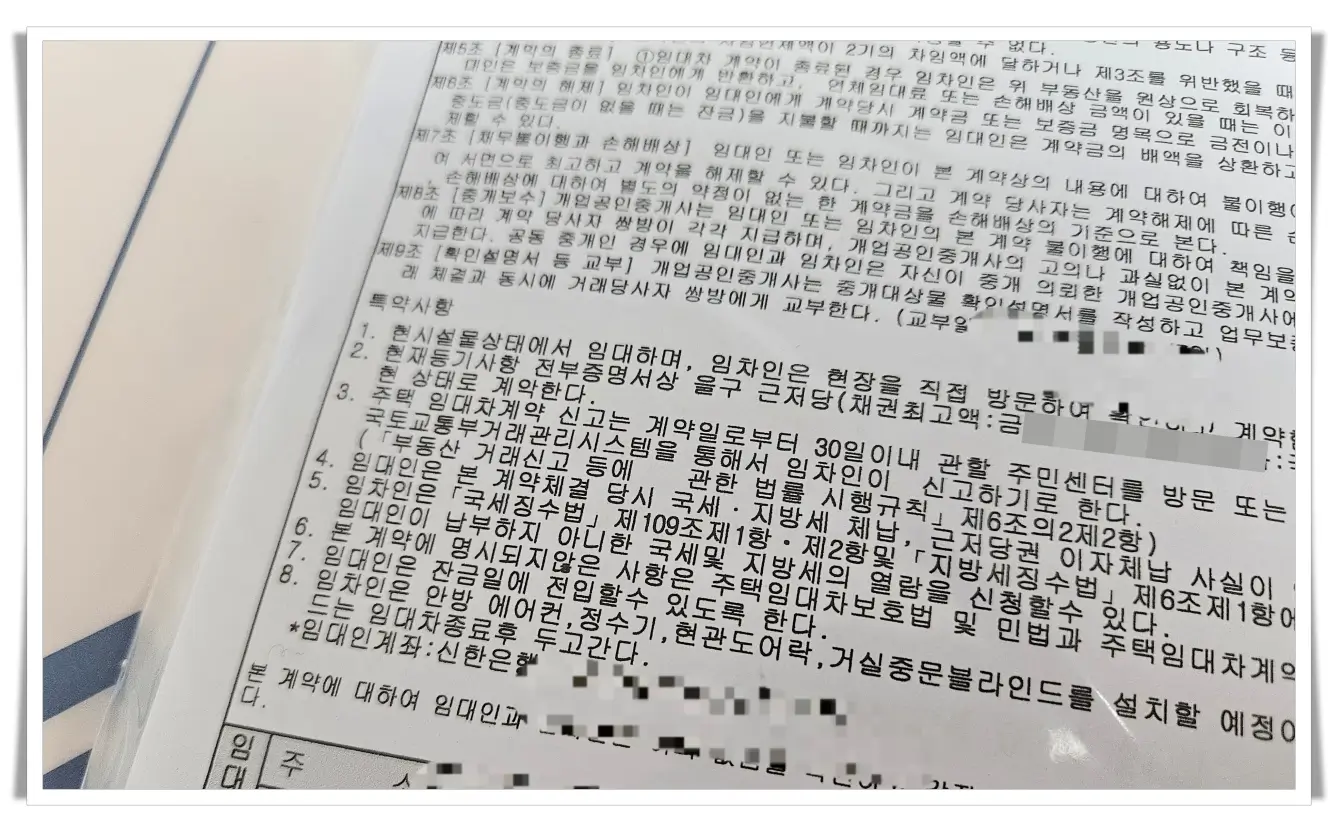 차임연체액이 2기의 차임액에 달하거나 제3조를 위반했을 때
제5조 [계약의 종료] ①임대차 계약이 종료된 경우 임차인은 위 부동산을 원상으로 회복하
대인은 보증금을 임차인에게 반환하고, 연체임대료 또는 손해배상 금액이 있을 때는 이
제6조 [계약의 해제] 임차인이 임대인에게 계약당시 계약금 또는 보증금 명목으로 금전이나
중도금(중도금이 없을 때는 잔금)을 지불할 때까지는 임대인은 계약금의 배액을 상환하고
제할 수 있다.
제7조 [채무불이행과 손해배상] 임대인 또는 임차인이 본 계약상의 내용에 대하여 불이행이
여 서면으로 최고하고 계약을 해제할 수 있다. 그리고 계약 당사자는 계약해제에 따른 손
, 손해배상에 대하여 별도의 약정이 없는 한 계약금을 손해배상의 기준으로 본다.
제8조 [중개보수] 개업공인중개사는 임대인 또는 임차인의 본 계약 불이행에 대하여 책임을
에 따라 계약 당사자 쌍방이 각각 지급하며, 개업공인중개사의 고의나 과실없이 본 계약
지급한다. 공동 중개인 경우에 임대인과 임차인은 자신이 중개 의뢰한 개업공인중개사에
제9조 [확인설명서 등 교부] 개업공인중개사는 중개대상물 확인설명서를 작성하고 업무보증
래 체결과 동시에 거래당사자 쌍방에게 교부한다. (교부일
특약사항
1. 현시설물상태에서 임대하며, 임차인은 현장을 직접 방문하여 계약
2. 현재등기사항 전부증명서상 을구 근저당(채권최고액:금
현 상태로 계약한다.
3. 주택 임대차계약 신고는 계약일로부터 30일이내 관할 주민센터를 방문 또는
국토교통부거래관리시스템을 통해서 임차인이 신고하기로 한다.
(「부동산 거래신고 등에 관한 법률 시행규칙」제6조의2제2항)
4. 임대인은 본 계약체결 당시 국세·지방세 체납, 근저당권 이자체납 사실이
5. 임차인은「국세징수법」제109조제1항·제2항및「지방세징수법」제6조제1항에
임대인이 납부하지 아니한 국세및 지방세의 열람을 신청할수 있다.
6. 본 계약에 명시되지않은 사항은 주택임대차보호법 및 민법과 주택임대차계약
7. 임대인은 잔금일에 전입할수 있도록 한다.
8. 임차인은 안방 에어컨,정수기,현관도어락,거실중문블라인드를 설치할 예정이
그는 임대차종료후 두고간다.
*임대인계좌:신한은행
본 계약에 대하여 임대인과
다.
임대
주 소